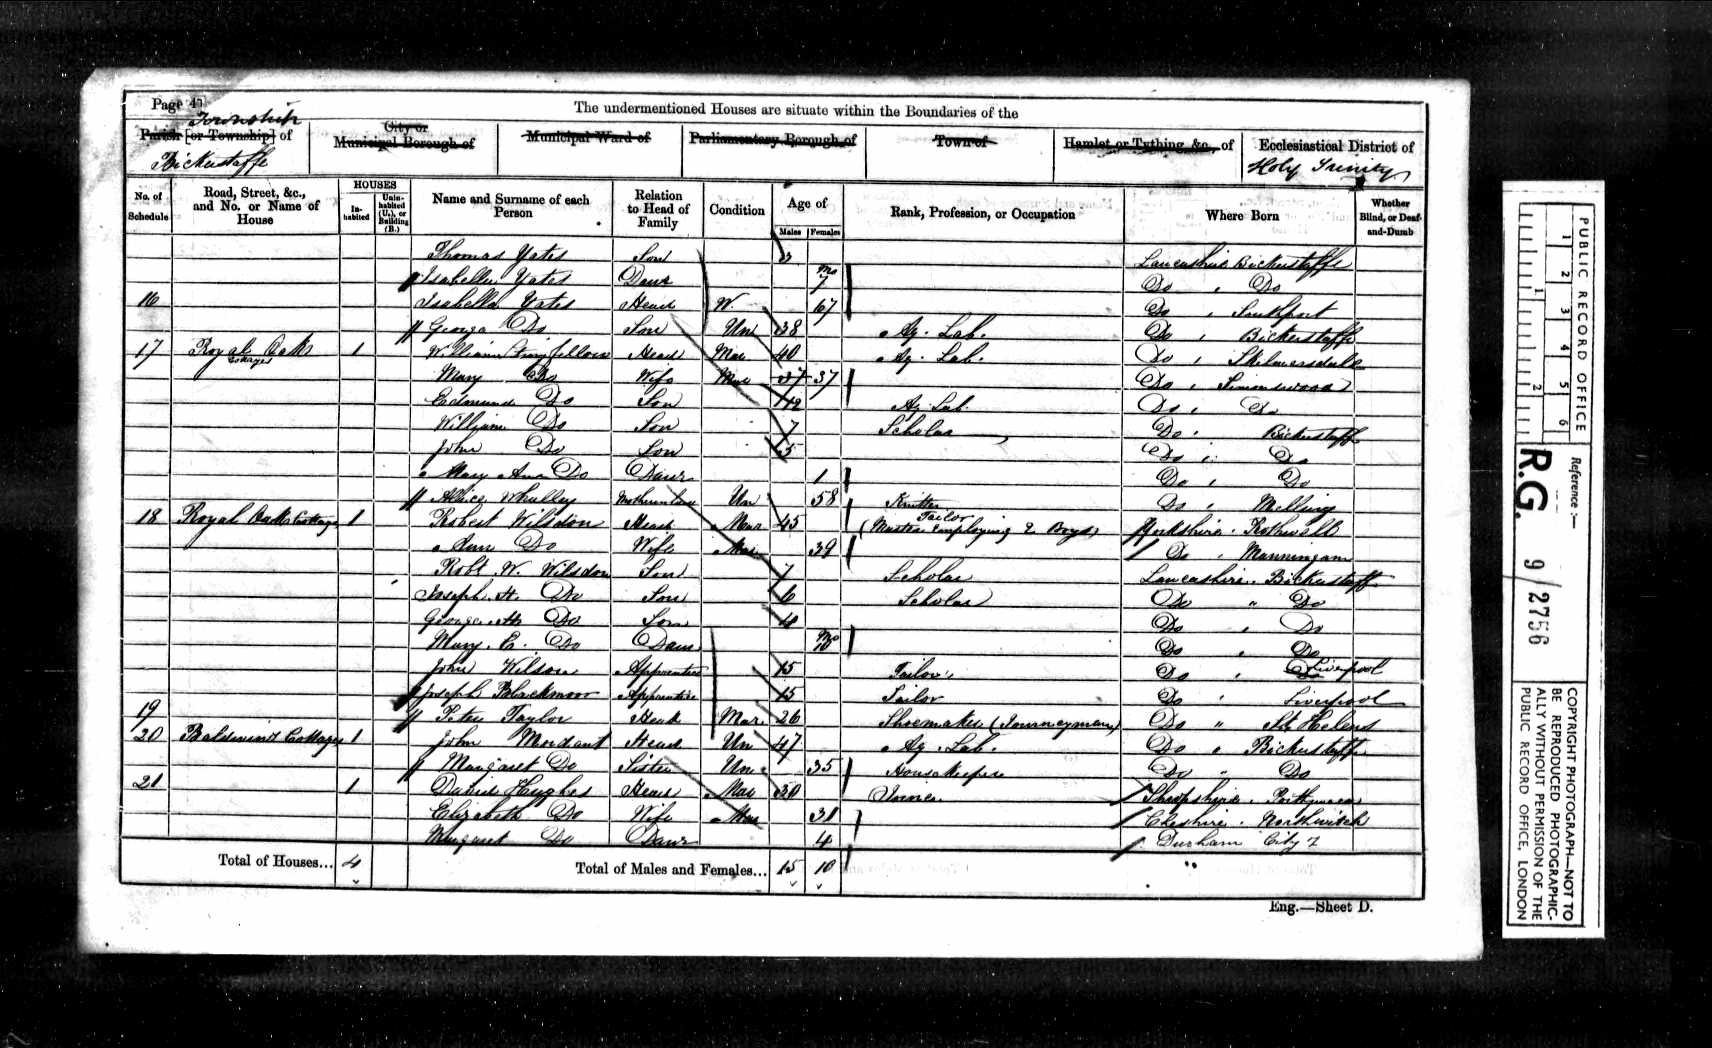 Page 4
The undermentioned Houses are situate within the Boundaries of the
Township
Parish [or Township] of
City or Municipal Borough of
Municipal Ward of
Parliamentary Borough of
Town of
Hamlet or Tything, &c., of
Ecclesiastical District of
Bickerstaffe
Holy Trinity
No. of Schedule
Road, Street, &c., and No. or Name of House
HOUSES
Inhabited
Uninhabited (U.), or Building (B.)
Name and Surname of each Person
Relation to Head of Family
Condition
Age of
Males
Females
Rank, Profession, or Occupation
Where Born
Whether Blind, or Deaf-and-Dumb
Thomas Yates Son 3 Lancashire Bickerstaffe
Isabella Yates Daur Mo 7 Do Do
16 Isabella Yates Head W. 67 Do Southport
George Do Son Un 38 Ag. Lab. Do Bickerstaffe
17 Royal Oak Cottages 1 William Head Mar 40 Ag. Lab. Do Skelmersdale
Mary Do Wife Mar 37 37 Do Simonswood
Edmund Do Son 12 Ag. Lab. Do Do
William Do Son 7 Scholar Do Bickerstaffe
John Do Son 5 Do Do
Mary Ann Do Daur 1 Do Do
Whalley Mother in law Un 58 Knitter Do Melling
18 Royal Oak Cottage 1 Robert Wilsdon Head Mar 45 Tailor (Master Employing 2 Boys) Yorkshire Rothwell
Ann Do Wife Mar 39 Do Manningam
Robt W. Wilsdon Son 7 Scholar Lancashire Bickerstaffe
Joseph H. Do Son 6 Scholar Do " Do
George Do Son 4 Do Do
Mary E. Do Daur Mo Do Do
John Wilson Apprentice 15 Tailor Do Do Liverpool
Joseph Blackmoor Apprentice 15 Tailor Do Liverpool
19 Peter Taylor Head Mar. 26 Shoemaker (Journeyman) Do " St. Helens
20 Baldwin's Cottages 1 John Mordant Head Un 47 Ag. Lab. Do Bickerstaffe
Margaret Do Sister Un 35 Housekeeper Do " Do
21 1 David Hughes Head Mar 30 Joiner Shropshire
Elizabeth Do Wife Mar 31 Cheshire Northwitch
Margaret Do Daur 4 Durham City
Total of Houses... 4
Total of Males and Females... 15 10
Eng.—Sheet D.
PUBLIC RECORD OFFICE
1 2 3 4 5 6
1 2
Reference:—
R.G. 9/2756
COPYRIGHT PHOTOGRAPH—NOT TO
BE REPRODUCED PHOTOGRAPHIC-
ALLY WITHOUT PERMISSION OF THE
PUBLIC RECORD OFFICE, LONDON